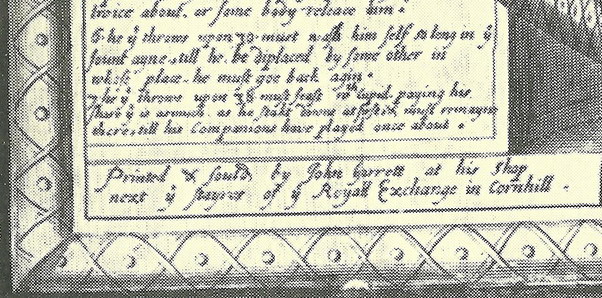 twice about, or some body release him.
The yt throws upon 30 must wash him self so long in ye
fountayne, till he be diplaced by some other in
whose place he must goe back agin.
The yt throwe upon 38 must feast wth Cupid, paying his
share yt is asmuch as he stakt downe at first, & must remayne
there, till his Companions have played once about.
Printed & sould, by John Garrett at his Shop
next ye stayres of ye Royall Exchange in Cornhill.